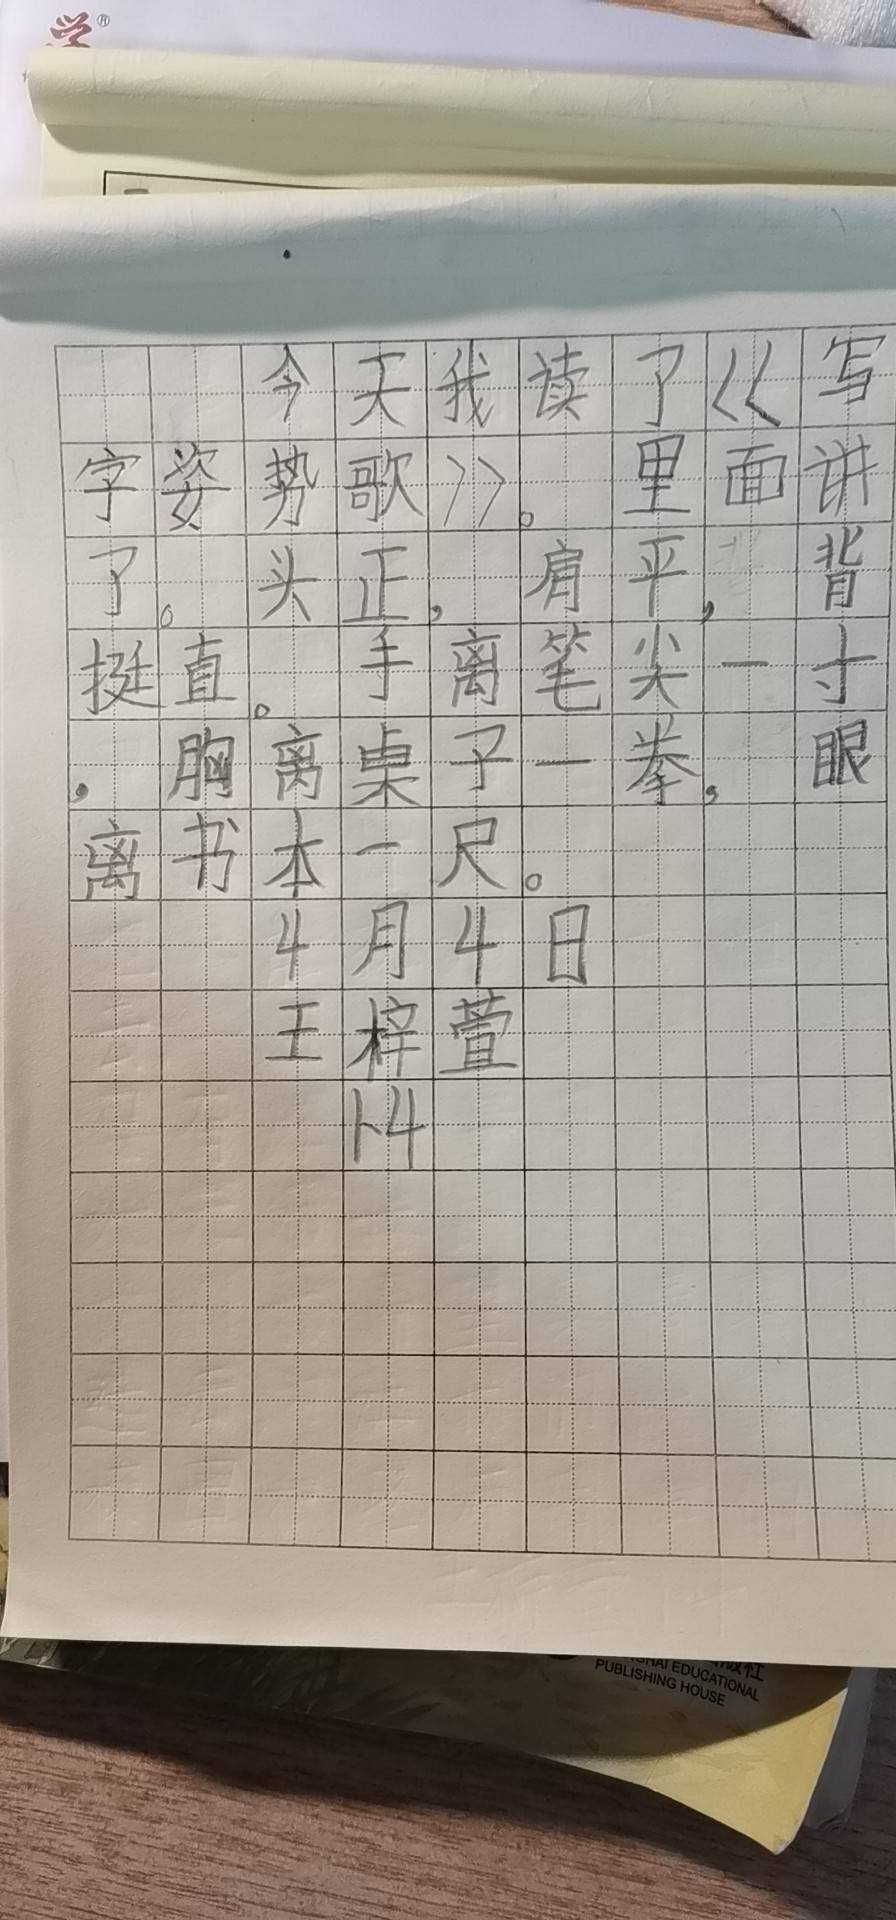 学®
今天我读了《写
字姿势歌》。里面讲
了。头正，肩平，背
挺直。手离笔尖一寸
，胸离桌子一拳，眼
离书本一尺。
4月4日
王梓萱
14
EDUCATIONAL
PUBLISHING HOUSE